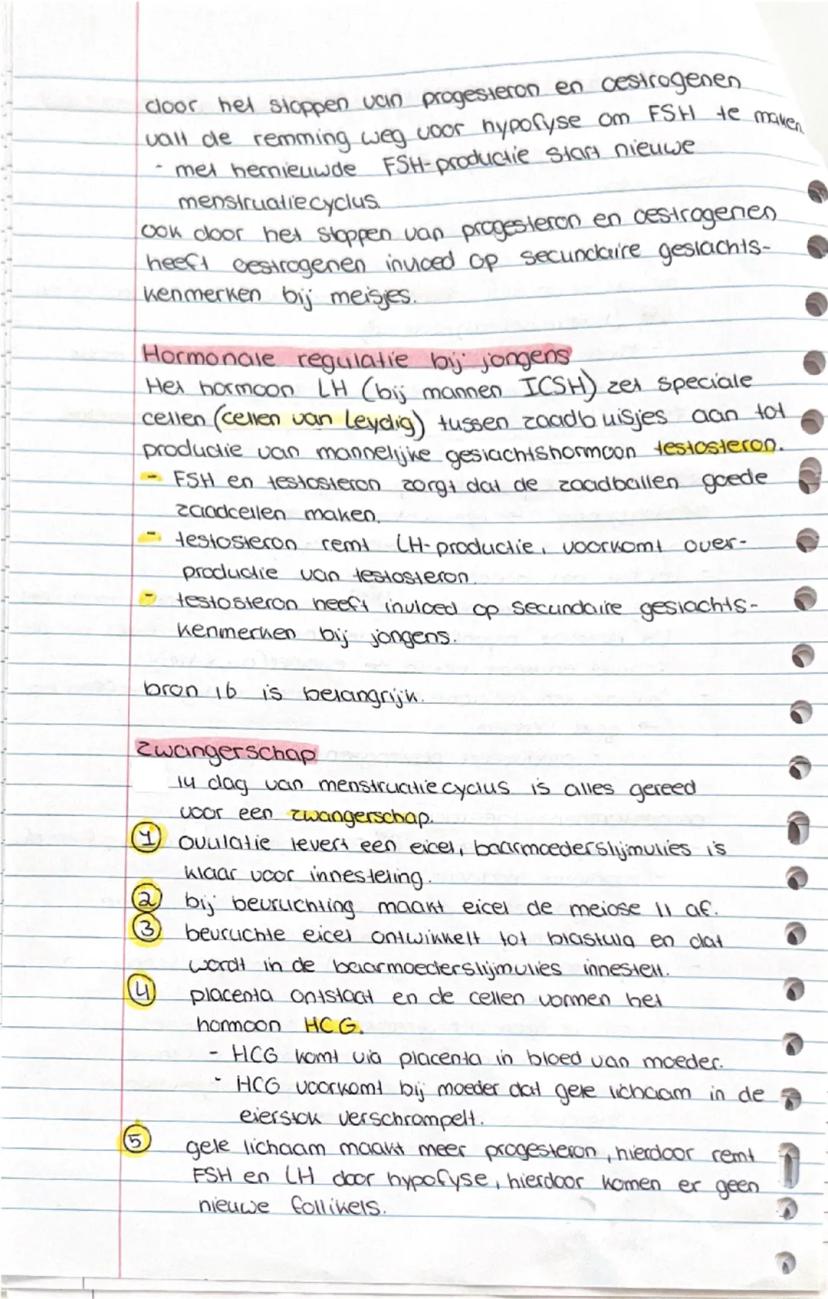 door het stoppen van progesteron en oestrogenen
valt de remming weg voor hypofyse om FSH te maken
- met hernieuwde FSH-productie start nieuwe
menstruatiecyclus
ook door het stoppen van progesteron en oestrogenen
heeft oestrogenen invloed op secundaire geslachts-
kenmerken bij meisjes.
Hormonale regulatie bij jongens
Het hormoon LH (bij mannen ICSH) zet speciale
cellen (cellen van Leydig) tussen zaadbuisjes aan tot
productie van mannelijke geslachtshormoon testosteron.
- FSH en testosteron zorgt dat de zaadballen goede
zaadcellen maken.
- testosteron remt LH-productie, voorkomt over-
productie van testosteron.
- testosteron heeft invloed op secundaire geslachts-
kenmerken bij jongens.
bron 16 is belangrijk.
Zwangerschap
14 dag van menstructie cyclus is alles gereed
voor een zwangerschap.
1 ovulatie levert een eicel, baarmoederslijmvlies is
klaar voor innesteling.
2 bij bevruchting maakt eicel de meiose II af.
3 bevruchte eicel ontwikkelt tot blastula en dat
wordt in de baarmoederslijmvlies innestelt.
4 placenta ontstaat en de cellen vormen het
hormoon HCG.
- HCG komt via placenta in bloed van moeder.
- HCG voorkomt bij moeder dat gele lichaam in de
eierstok verschrompelt.
5 gele lichaam maakt meer progesteron, hierdoor remt
FSH en LH door hypofyse, hierdoor komen er geen
nieuwe follikels.